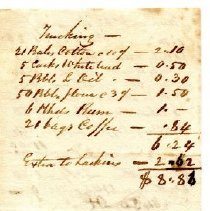 Trucking —
21 Bales Cotton c 10 ⌿ — 2.10
5 Casks White lead — 0.50
5 Bbls L Oil — 0.30
50 Bbls flour c 3 ⌿ — 1.50
6 Hhds Rum — 1.—
21 bags Coffee — .84
6.24
Extra to Larkins — 2.62
$8.86